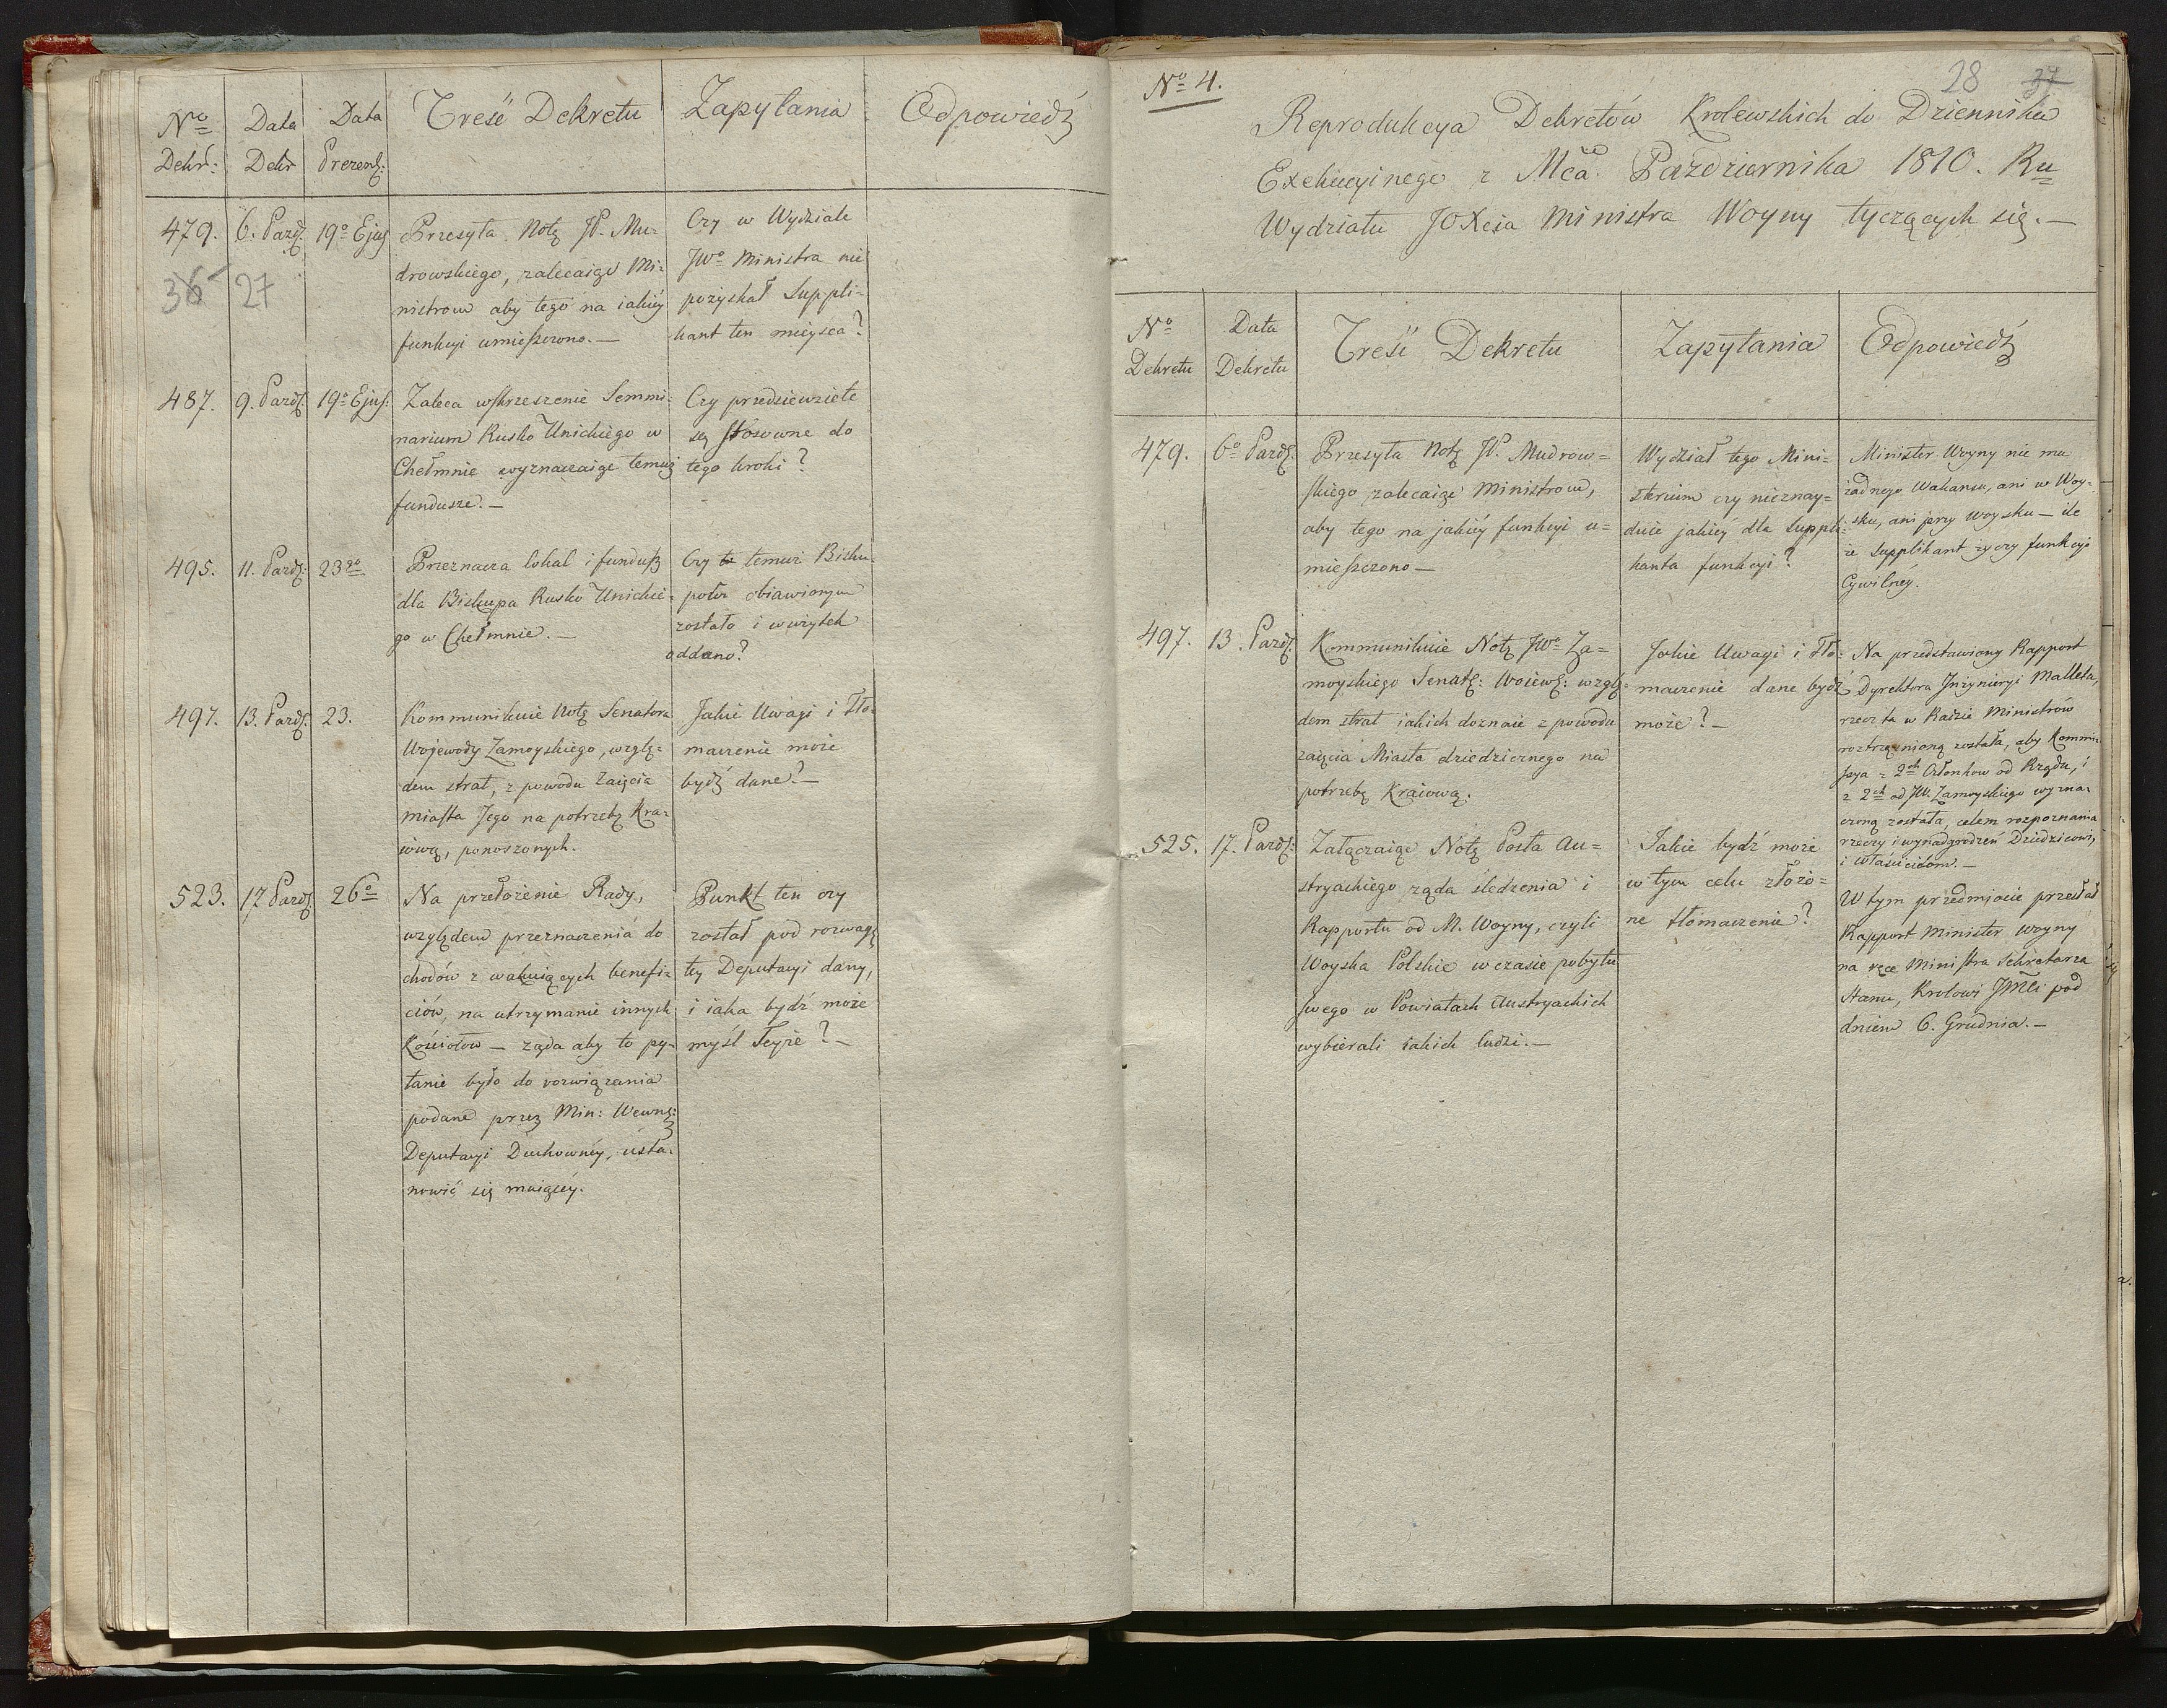 Nº Dekr:
Data Dekr
Data Prezent:
Treść Dekretu
Zapytania
Odpowiedź
479.
6. Pazd:
19º Ejus
Przesyła Notę JP. Mu-
drowskiego, zalecaiąc Mi-
nistrom aby tego na iakiéy
funkcyi umieszczono. —
Czy w Wydziale
JWº Ministra nie
pozyskał Suppli-
kant ten mieysca?
36
27
487.
9. Pazd:
19º Ejus:
Zaleca wskrzeszenie Semmi-
narium Rusko Unickiego w
Chełmnie wyznaczaiąc temuż
fundusze. —
Czy przedsięwzięte
są stosowne do
tego kroki?
495.
11. Pazd:
23go
Przeznacza lokal i fundusz
dla Biskupa Rusko Unickie-
go w Chełmnie. —
Czy to temuż Bisku-
powi obiawionym
zostało i w użytek
oddano?
497.
13. Pazd:
23.
Kommunikuie Notę Senatora
Wojewody Zamoyskiego, wzglę-
dem strat, z powodu Zaięcia
miasta Jego na potrzebę Kra-
iową, ponoszonych.
Jakie Uwagi i tło-
maczenie może
bydź dane? —
523.
17 Pazd:
26º
Na przełożenie Rady,
względem przeznaczenia do
chodów z wakuiących benefi-
ciów, na utrzymanie innych
Kościołów — ząda aby to py-
tanie było do rozwiązania
podane przez Min: Wewnę:
Deputacyi Duchownéy, usta-
nowić się maiącéy.
Punkt ten czy
został pod rozwagę
téy Deputacyi dany,
i iaka bydź może
myśl Teyże? —
Nº 4.
28 37
Reprodukcya Dekretów Krolewskich do Dziennika
Exekucyinego z Mca Pazdziernika 1810. Ru
Wydziału JOXcia Ministra Woyny tyczących się. —
Nº Dekretu
Data Dekretu
Treść Dekretu
Zapytania
Odpowiedź
479.
6º Pazd:
Przesyła Notę JP. Mudrow=
skiego zalecaiąc Ministrom,
aby tego na jakiéy funkcyi u=
mieszczono —
Wydział tego Mini-
sterium czy nieznay=
duie jakiéy dla Suppli-
kanta funkcyi?
Minister Woyny nie ma
żadnego Wakansu, ani w Woy-
sku, ani przy woysku — ile
że Supplikant życzy funkcyi
Cywilnéy.
497.
13. Pazd:
Kommunikuie Notę JWº Za=
moyskiego Senat: Woiew: wzglę-
dem strat iakich doznaie z powodu
zaięcia Miasta dziedzicznego na
potrzebę Kraiową.
Jakie Uwagi i tło-
maczenie dane bydź
może? —
Na przedstawiony Rapport
Dyrektora Inżynieryi Malleta,
rzecz ta w Radzie Ministrów
roztrząsnioną została, aby Kommi-
ssya z 2ch Członkow od Rządu, i
z 2ch od JW. Zamoyskiego wyzna-
czoną została, celem rozpoznania
rzeczy i wynadgrodzeń Dziedzicowi,
i Właścicielom. —
525.
17. Pazd:
Załączaiąc Notę Posła Au=
stryackiego ząda śledzenia i
Rapportu od M. Woyny, czyli
Woyska Polskie w czasie pobytu
swego w Powiatach Austryackich
wybierali iakich ludzi. —
Jakie bydź może
w tym celu złożo=
ne tłomaczenie?
W tym przedmiocie przesłał
Rapport Minister woyny
na ręce Ministra Sekretarza
Stanu, Krolowi JMCi pod
dniem 6. Grudnia. —